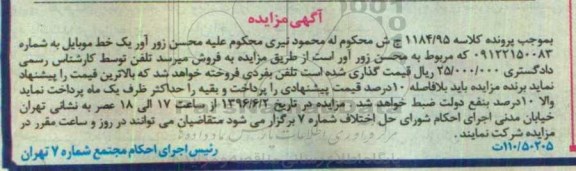 آگهی مزایده
بموجب پرونده کلاسه ۱۱۸۴/۹۵ ج ش محکوم له محمود نیری محکوم علیه محسن زور آور یک خط موبایل به شماره
۰۹۱۲۲۱۵۰۰۸۳ که مربوط به محسن زور آور است از طریق مزایده به فروش میرسد تلفن توسط کارشناس رسمی
دادگستری ۲۵/۰۰۰/۰۰۰ ریال قیمت گذاری شده است تلفن بفردی فروخته خواهد شد که بالاترین قیمت را پیشنهاد
نماید برنده مزایده باید بلافاصله ۱۰درصد قیمت پیشنهادی را پرداخت و بقیه را حداکثر ظرف یک ماه پرداخت نماید
والا ۱۰درصد بنفع دولت ضبط خواهد شد . مزایده در تاریخ ۱۳۹۶/۶/۲ از ساعت ۱۷ الی ۱۸ عصر به نشانی تهران
خیابان مدنی اجرای احکام شورای حل اختلاف شماره ۷ برگزار می شود متقاضیان می توانند در روز و ساعت مقرر در
مزایده شرکت نمایند.
۱۱۰/۵۰۲۰۵ت رئیس اجرای احکام مجتمع شماره ۷ تهران